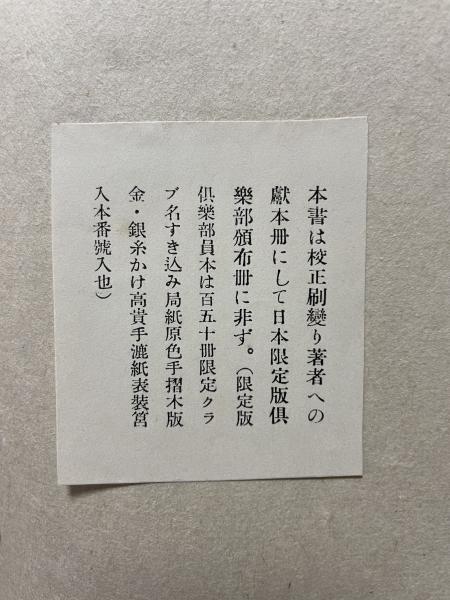 本書は校正刷變り著者への
獻本册にして日本限定版俱
樂部頒布册に非ず。（限定版
俱樂部員本は百五十册限定クラ
ブ名すき込み局紙原色手摺木版
金・銀糸かけ高貴手漉紙表裝筥
入本番號入也）